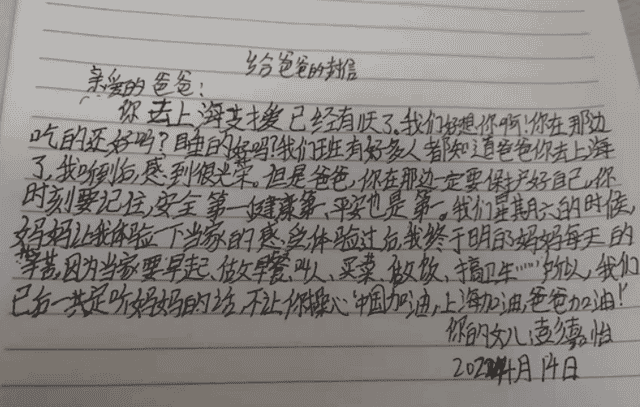 给爸爸的封信
亲爱的爸爸：
你去上海支援已经有天了。我们好想你啊！你在那边
吃的还好吗？睡的好吗？我们班有好多人都知道爸爸你去上海
了，我听到后，感到很光荣。但是爸爸，你在那边一定要保护好自己，你
时刻要记住，安全第一，健康第一，平安也是第一。我们星期六的时候，
妈妈让我体验一下当家的感觉，体验过后，我终于明白妈妈每天的
辛苦，因为当家要早起、做早餐、叫人、买菜、做饭、搞卫生……所以，我们
已后一定听妈妈的话，不让你操心“中国加油，上海加油，爸爸加油！”
你的女儿：彭怡
4月14日